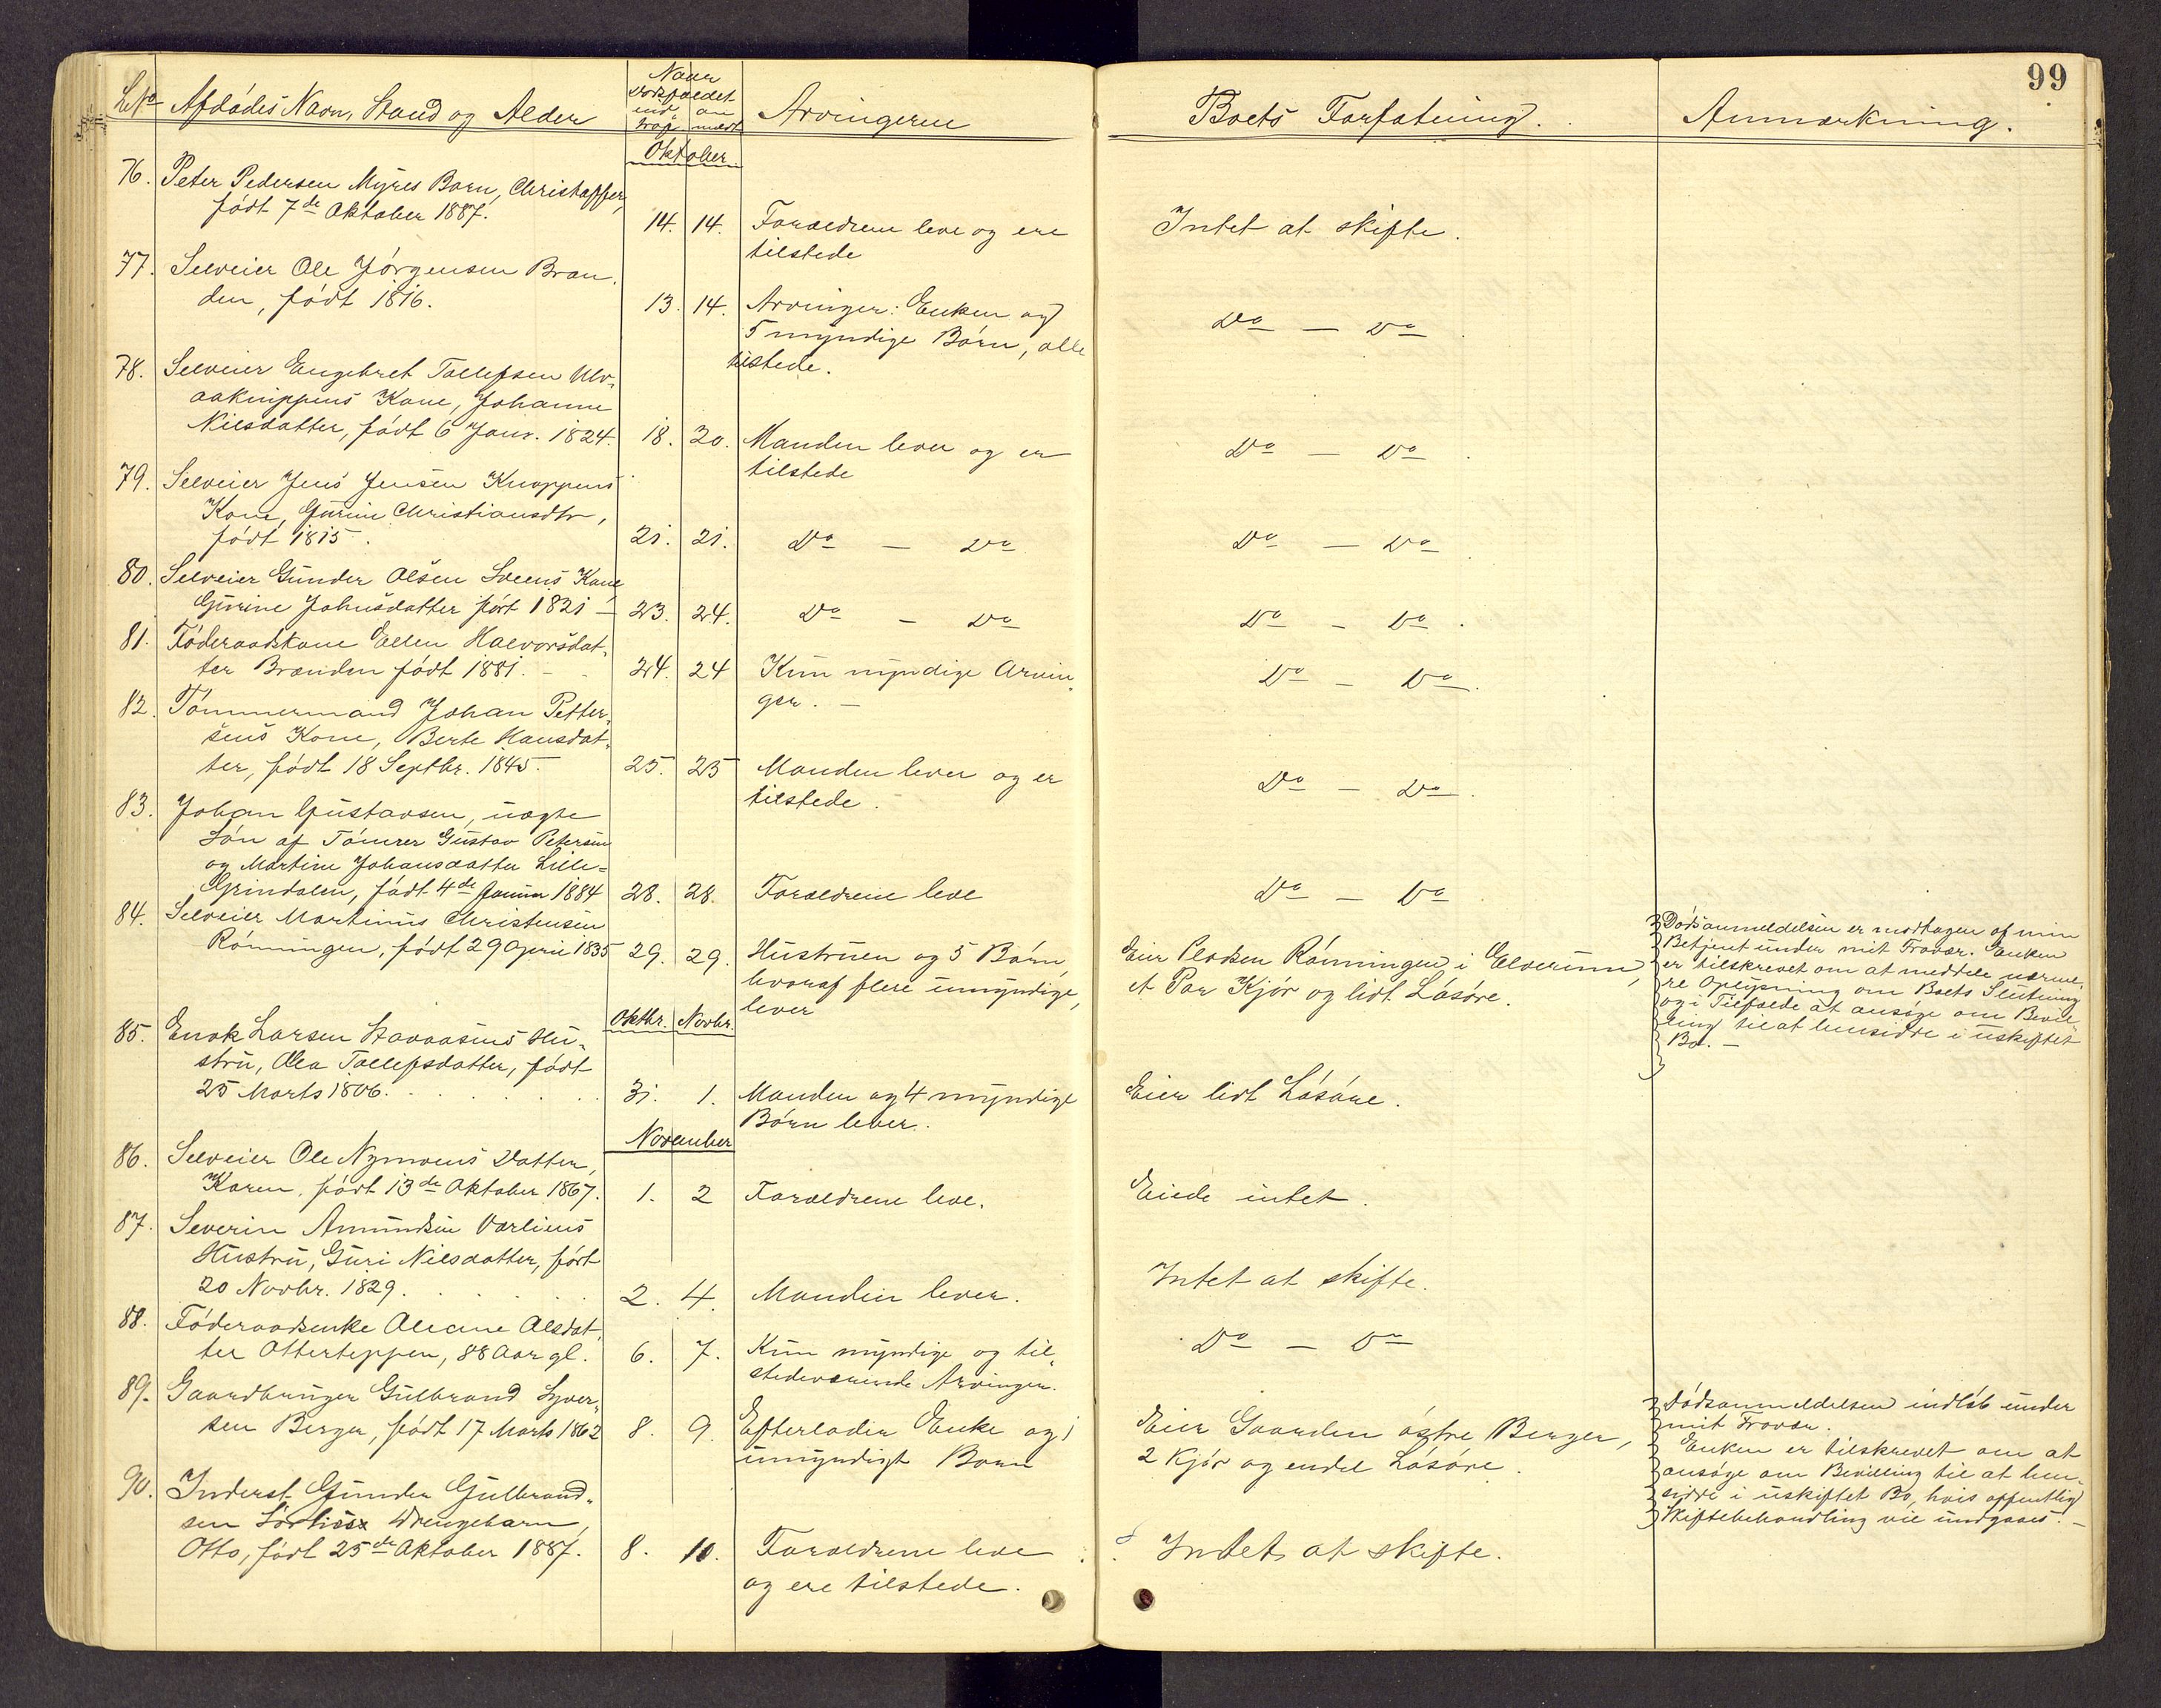 99
LNo Afdødes Navn, Stand og Alder
Naar Dødsfaldet
ind- an-
traf meldt
Arvingerne
Boets Forfatning.
Anmærkning.
Oktober
76. Peter Pedersen Myres Barn, Christoffer,
født 7de Oktober 1887.
14. 14. Forældrene leve og ere
tilstede
Intet at skifte.
77. Selveier Ole Jørgensen Bræn-
den, født 1816.
13. 14. Arvinger: Enken og
5 myndige Børn, alle
tilstede.
Do — Do
78. Selveier Engebret Tollefsen Ulv-
aaknappens Kone, Johanne
Nilsdatter, født 6 Janr. 1824.
18. 20. Manden lever og er
tilstede
Do — Do
79. Selveier Jens Jensen Knappens
Kone, Gurine Christiansdtr,
født 1815.
21. 21. Do — Do
Do — Do
80. Selveier Gunder Olsen Sveens Kone
Gurine Johnsdatter født 1821 —
23. 24. Do — Do
Do — Do.
81. Føderaadskone Ellen Halvorsdat-
ter Brænden født 1881.
24. 24 Kun myndige Arvin-
ger. —
Do — Do.
82. Tømmermand Johan Petter-
sens Kone, Berte Hansdat-
ter, født 18 Septbr. 1845.
25. 25 Manden lever og er
tilstede.
Do — Do.
83. Johan Gustavsen, uægte
Søn af Tømrer Gustav Petersen
og Martine Johansdatter Lille-
Grindalen, født 4de Januar 1884
28. 28. Forældrene leve
Do — Do
84. Selveier Martinus Christensen
Rønningen, født 29 April 1835
29. 29. Hustruen og 5 Børn,
hvoraf flere umyndige,
lever
Eier Pladsen Rønningen i Elverum,
et Par Kjør og lidt Løsøre.
Dødsanmeldelsen er modtagen af min
Betjent under mit Fravær. Enken
er tilskrevet om at meddele nærme-
re Oplysning om Boets Slutning
og i Tilfælde at ansøge om Bevil-
ling til at hensidde i uskiftet
Bo. —
Oktbr. Novbr.
85. Enok Larsen Stavaasens Hu-
stru, Olea Tollefsdatter, født
25 Marts 1806.
31. 1. Manden og 4 myndige
Børn lever.
Eier lidt Løsøre.
November
86. Selveier Ole Nymoens Datter,
Karen, født 13de Oktober 1867.
1. 2 Forældrene leve.
Eiede intet.
87. Severin Amundsen Varliens
Hustru, Guri Nilsdatter, født
20 Novbr. 1829.
2. 4. Manden lever.
Intet at skifte.
88. Føderaadsenke Oleane Olsdat-
ter Otterteppen, 88 Aar gl.
6. 7. Kun myndige og til-
stedeværende Arvinger.
Do — Do
89. Gaardbruger Gulbrand Syver-
sen Berger, født 17 Marts 1862
8. 9. Efterlader Enke og 1
umyndigt Barn
Eier Gaarden østre Berger,
2 Kjør og endel Løsøre.
Dødsanmeldelsen indløb under
mit Fravær.
Enken er tilskrevet om at
ansøge om Bevilling til at hen-
sidde i uskiftet Bo, hvis offentlig
Skiftebehandling vil undgaaes. —
90. Inderst Gunder Gulbrand-
sen Drengebarn,
Otto, født 25de Oktober 1887.
8. 10. Forældrene leve
og ere tilstede.
Intet at skifte.